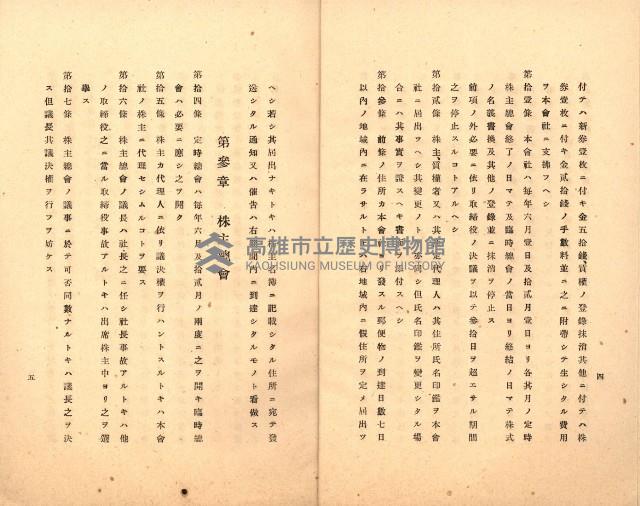 付テハ新券壹枚ニ付キ金五拾錢、質權ノ登錄抹消其他ニ付テハ株
券壹枚ニ付キ金貳拾錢ノ手數料並ニ之ニ附帶シテ生シタル費用
ヲ本會社ニ支拂フヘシ
第拾壹條 本會社ハ每年六月壹日及拾貳月壹日ヨリ各其月ノ定時
株主總會終了ノ日マテ及臨時總會ノ當日ヨリ終結ノ日マテ株式
ノ名義書換及其他ノ登錄並ニ抹消ヲ停止ス
前項ノ外必要ニ依リ取締役ノ決議ヲ以テ參拾日ヲ超エサル期間
之ヲ停止スルコトアルヘシ
第拾貳條 株主、質權者又ハ其法定代理人ハ其住所氏名印鑑ヲ本會
社ニ屆出ツヘシ其變更ノトキ亦同シ但氏名印鑑ヲ變更シタル場
合ニハ其事實ヲ證スヘキ書面ヲ添付スヘシ
第拾參條 前條ノ住所カ本會社ヨリ發スル郵便物ノ到達日數七日
以內ノ地域內ニ在ラサルトキハ右地域內ニ假住所ヲ定メ屆出ツ
四
ヘシ若シ其屆出ナキトキハ株主名簿ニ記載シタル住所ニ宛テ發
送シタル通知又ハ催告ハ右期間內ニ到達シタルモノト看做ス
第參章 株主總會
第拾四條 定時總會ハ每年六月及拾貳月ノ兩度ニ之ヲ開キ臨時總
會ハ必要ニ應シ之ヲ開ク
第拾五條 株主カ代理人ニ依リ議決權ヲ行ハントスルトキハ本會
社ノ株主ニ代理セシムルコトヲ要ス
第拾六條 株主總會ノ議長ハ社長之ニ任シ社長事故アルトキハ他
ノ取締役之ニ當ル取締役事故アルトキハ出席株主中ヨリ之ヲ選
擧ス
第拾七條 株主總會ノ議事ニ於テ可否同數ナルトキハ議長之ヲ決
ス但議長其議決權ヲ行フヲ妨ケス
五
高雄市立歷史博物館
KAOHSIUNG MUSEUM OF HISTORY